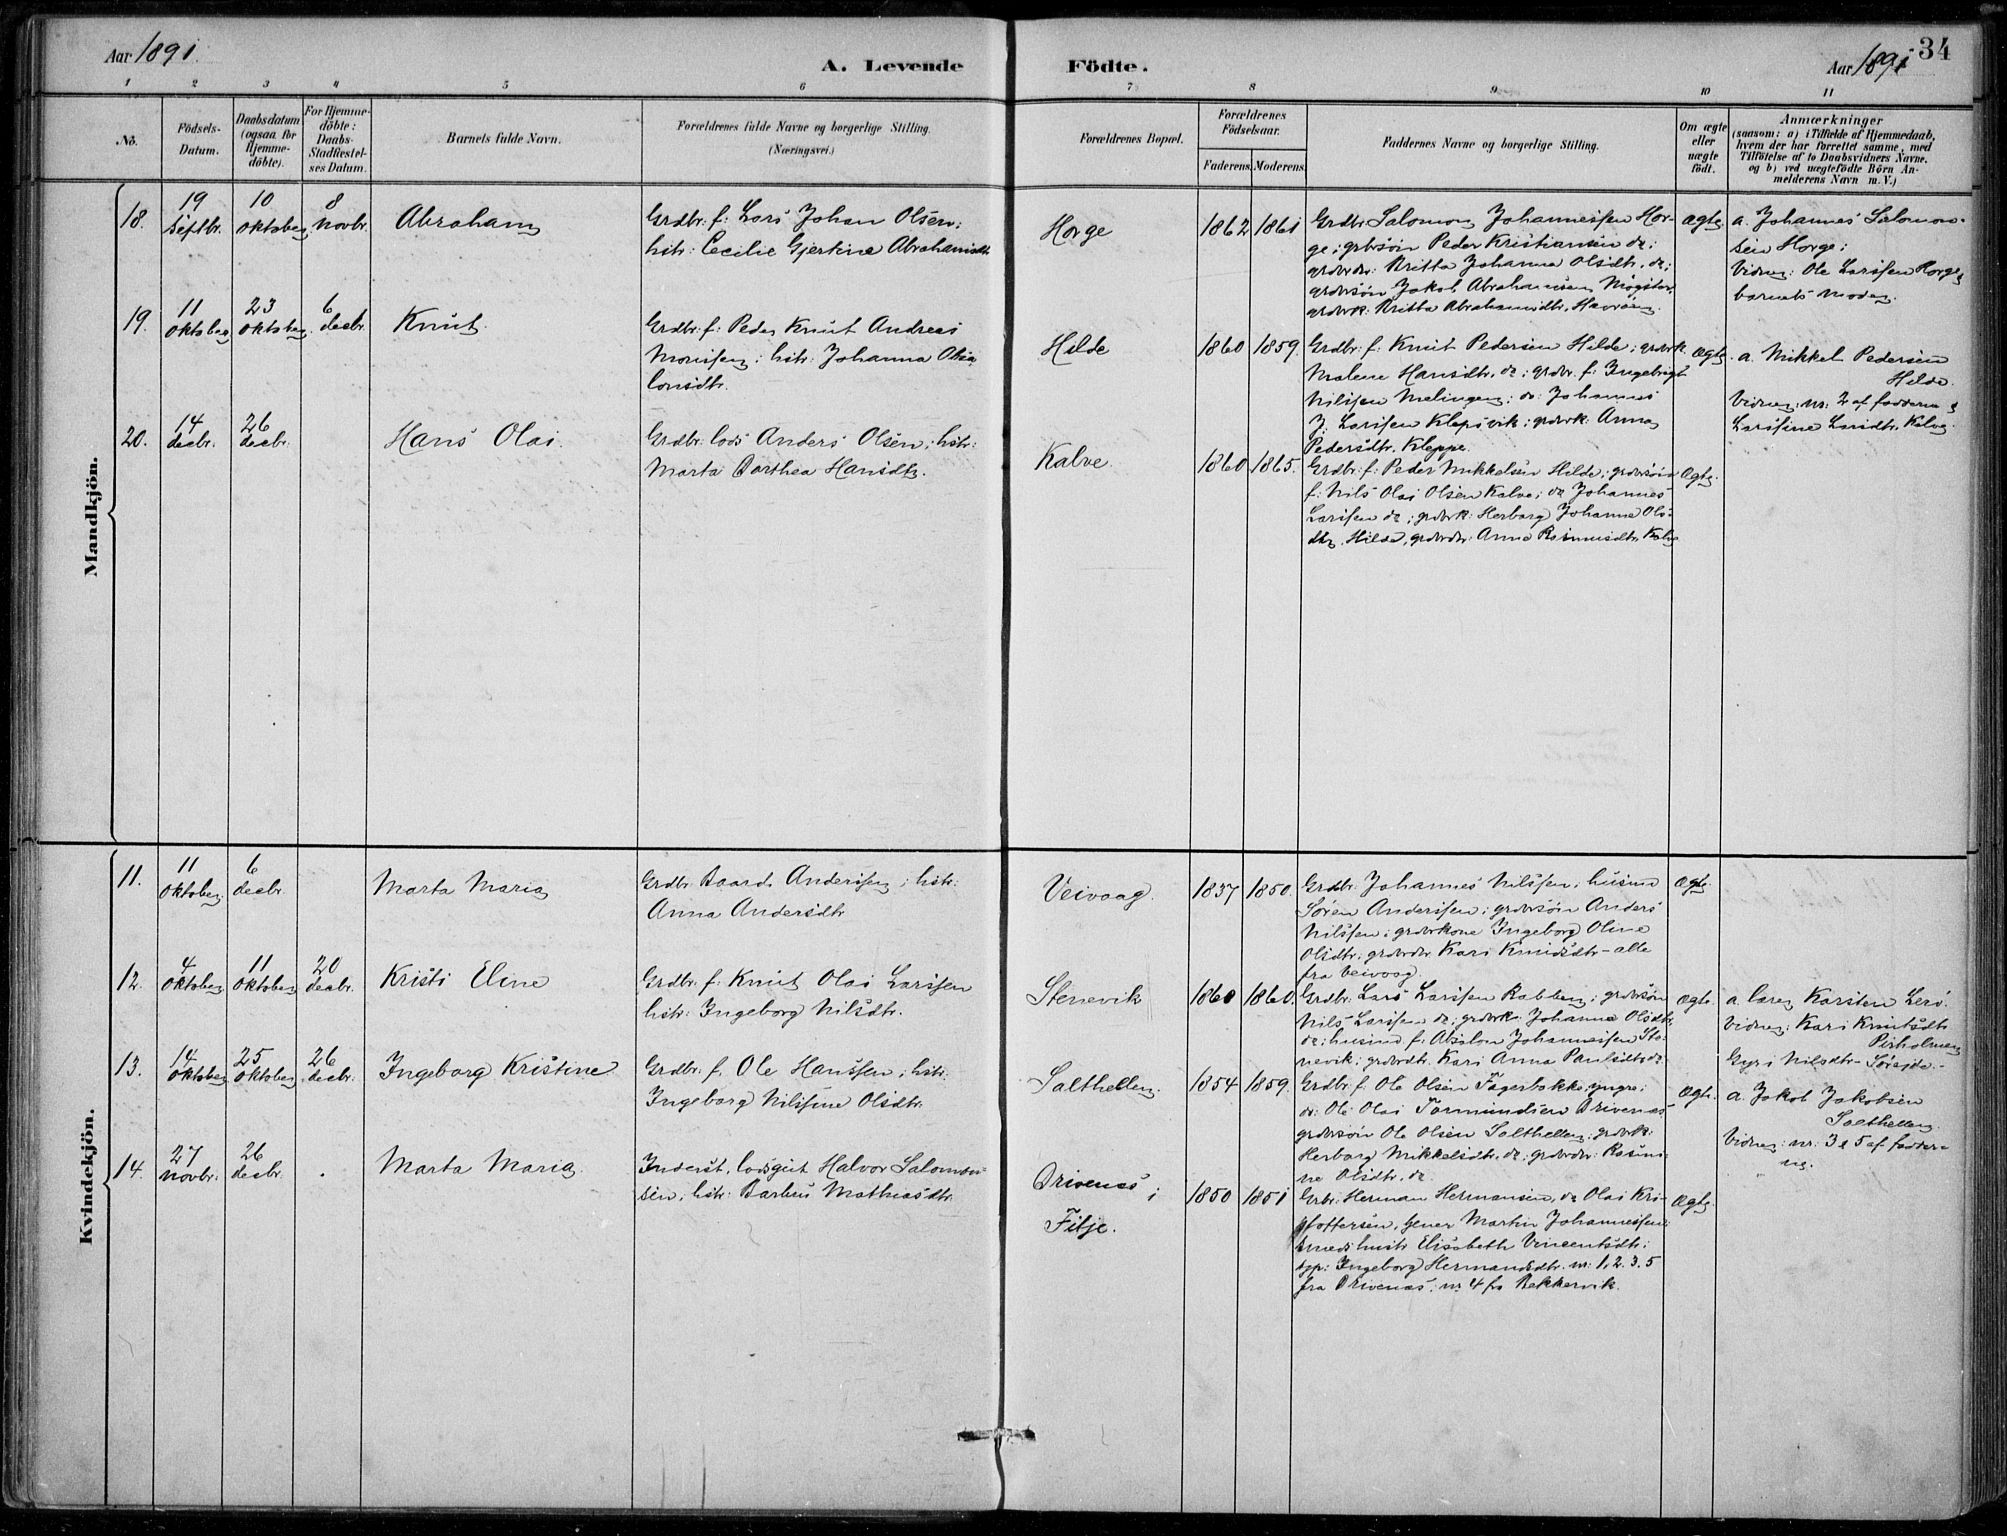 Aar 1891.
A. Levende Födte.
Aar 1891
34
1 2 3 4 5 6 7 8 9 10 11
No.
Födsels-
Datum.
Daabsdatum
(ogsaa for
Hjemme-
döbte).
For Hjemme-
döbte:
Daabs-
Stadfæstel-
ses Datum.
Barnets fulde Navn.
Forældrenes fulde Navne og borgerlige Stilling.
(Næringsvei.)
Forældrenes Bopæl.
Forældrenes
Födselsaar.
Faderens. Moderens.
Faddernes Navne og borgerlige Stilling.
Om ægte
eller
uægte
födt.
Anmærkninger
(saasom: a) i Tilfælde af Hjemmedaab,
hvem der har forrettet samme, med
Tilföielse af to Daabsvidners Navne,
og b) ved uægtefödte Börn An-
melderens Navn m. V.)
Mandkjön.
18.
19
Septbr.
10
oktober
8
novbr.
Abraham
Grdbr. f: Lars Johan Olsen;
hstr: Cecilie Gjertine Abrahamsdtr
Horge
1862 1861
Grdbr. Salomon Johannessen Hor-
ge; grdbrsön Peder Kristiansen do;
grdbrdr: Britta Johanna Olsdtr. do;
grdbrsön Jakob Abrahamsen Møgster,
grdbrk: Britta Abrahamsdtr.
Ægte
a. Johannes Salomon-
sen Horge;
Vidner: Ole Larssen Horge &
barnets moder.
19.
11
oktober
23
oktober
6
decbr.
Knut.
Grdbr. f: Peder Knut Andreas
Monssen; hstr: Johanna
Hilde
1860 1859.
Grdbr. f: Knut Pedersen Hilde; grdbrk.
Malene Hansdtr. do; grdbr. f: Ingebrigt
Nilssen Melingen; do: Johannes
J. Larssen Klepsvik; grdbrk: Anna
Pedersdtr. Kleppe.
Ægte
a. Mikkel Pedersen
Hilde.
Vidner: nr. 2 af fadderne &
Larsine Larsdtr. Kalve.
20.
14
decbr.
26
decbr.
Hans Olai.
Grdbr. lods Anders Olsen; hstr:
Marta Dorthea Hansdtr.
Kalve.
1860 1865.
Grdbr. f: Peder Mikkelsen Hilde; grdbrsön
f: Nils Olai Olsen Kalve; do Johannes
Larssen do; grdbrk: Herborg Johanne Ols-
dtr. Hilde, grdbrdr: Anna Rasmusdtr. Kalve
Ægte.
Kvindekjön.
11.
11
oktober
6
decbr.
Marta Maria
Grdbr. Baard Anderssen; hstr:
Anna Andersdtr
Veivaag.
1837 1850.
Grdbr. Johannes Nilssen; husmd
Sören Anderssen; grdbrsön Anders
Nilssen; grdbrkone Ingeborg Oline
Olsdtr; grdbrdr Kari Knudsdtr - alle
fra Veivaag.
Ægte.
12.
4
oktober
11
oktober
20
decbr.
Kristi Eline
Grdbr. f. Knut Olai Larssen
hstr: Ingeborg Nilsdtr.
Stenevik
1860 1860.
Grdbr. Lars Larssen Rabben; grdbrsön
Nils Larssen do; grdbrk: Johanna Olsdtr.
do; husmd f: Absalon Johannessen Ste-
nevik; grdbrdtr. Kari Anna Paulsdtr. do.
Ægte.
a. Karsten Lerö.
Vidner: Kari Knutsdtr
Pirholmen
Gyri Nilsdtr -
13.
14
oktober
25
oktober
26
decbr.
Ingeborg Kristine
Grdbr. f. Ole Hanssen; hstr:
Ingeborg Nilssine Olsdtr.
Salthellen.
1854 1859.
Grdbr f: Ole Olsen Fagerbakke, yngre;
do: Ole Olai Tormundsen Drivenæs
grdbrsön Ole Olsen Salthellen; grdbrk:
Herborg Mikkelsdtr. do; grdbrdr: Rasmi-
ne Olsdtr. do.
Ægte.
a. Jakob Jakobsen
Salthellen.
Vidner: nr: 3 & 5 af fadder-
ne.
14.
27
novbr.
26
decbr.
Marta Maria.
Inderst, lodsgut Halvor Salomon-
sen; hstr: Barbru Mathiasdtr.
Drivenæs i
Fitje.
1850 1851
Grbr. Herman Hermansen, do Olai Kri-
stoffersen, Martin Johannessen;
Smeds hustr Elisabeth Vincentsdtr;
Ingeborg Hermandsdtr. nr: 1, 2. 3. 5
fra Drivenæs, nr 4 fra Bekkervik.
Ægte.